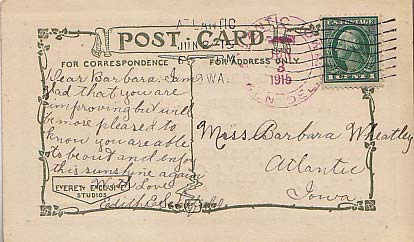 ATLANTIC
JUN 3
IOWA.
1915
POST CARD
FOR CORRESPONDENCE
FOR ADDRESS ONLY
Dear Barbara. I am
glad that you are
improving but will
be more pleased to
know you are able
to be out and enjoy
this sunshine again
With Love
Edith
EVERETT
STUDIOS
Miss Barbara Wheatley
Atlantic
Iowa